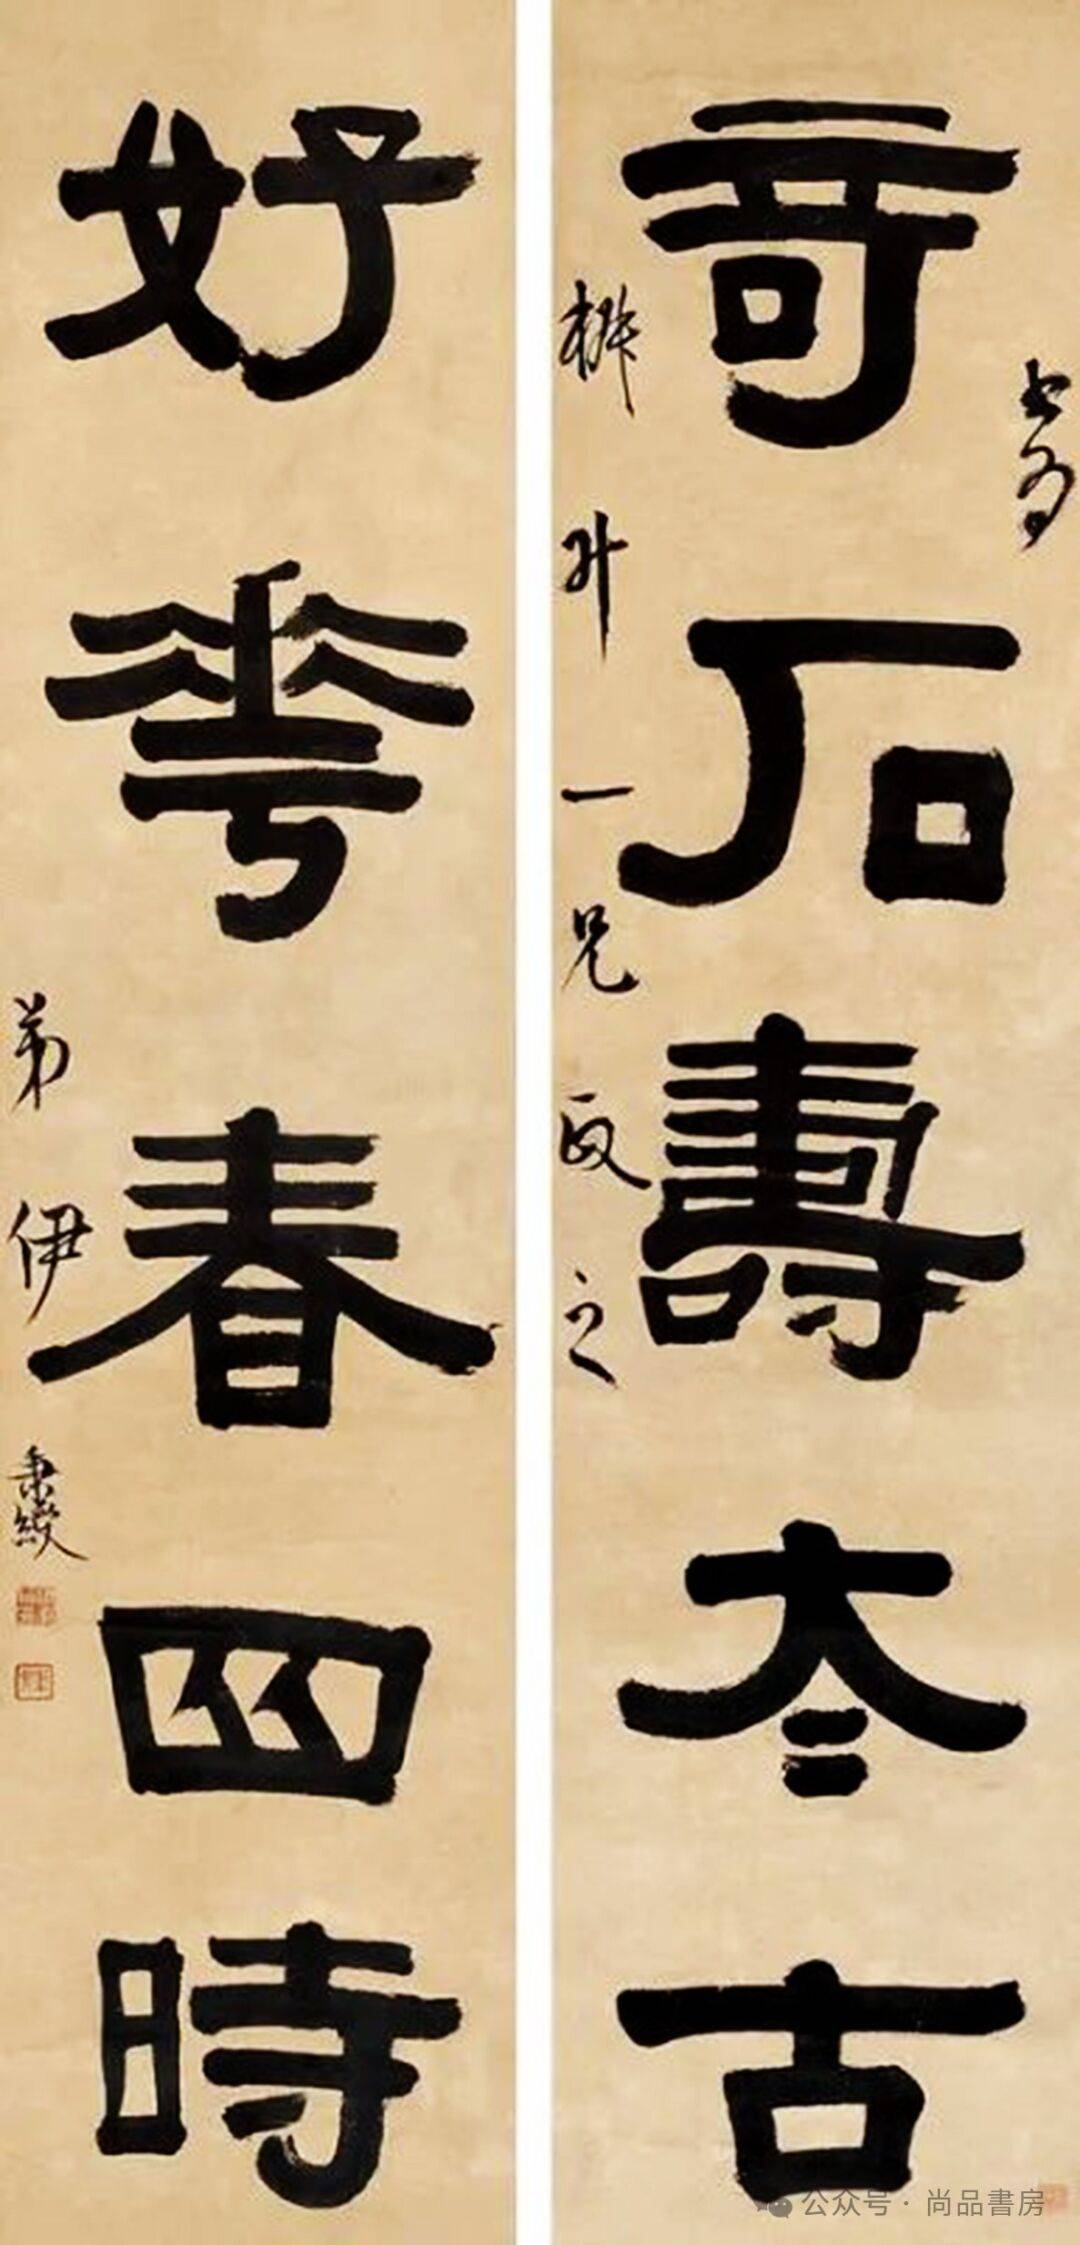 書為
奇石壽太古
升一兄政之
好華春四時
弟伊秉綬
公众号·尚品書房